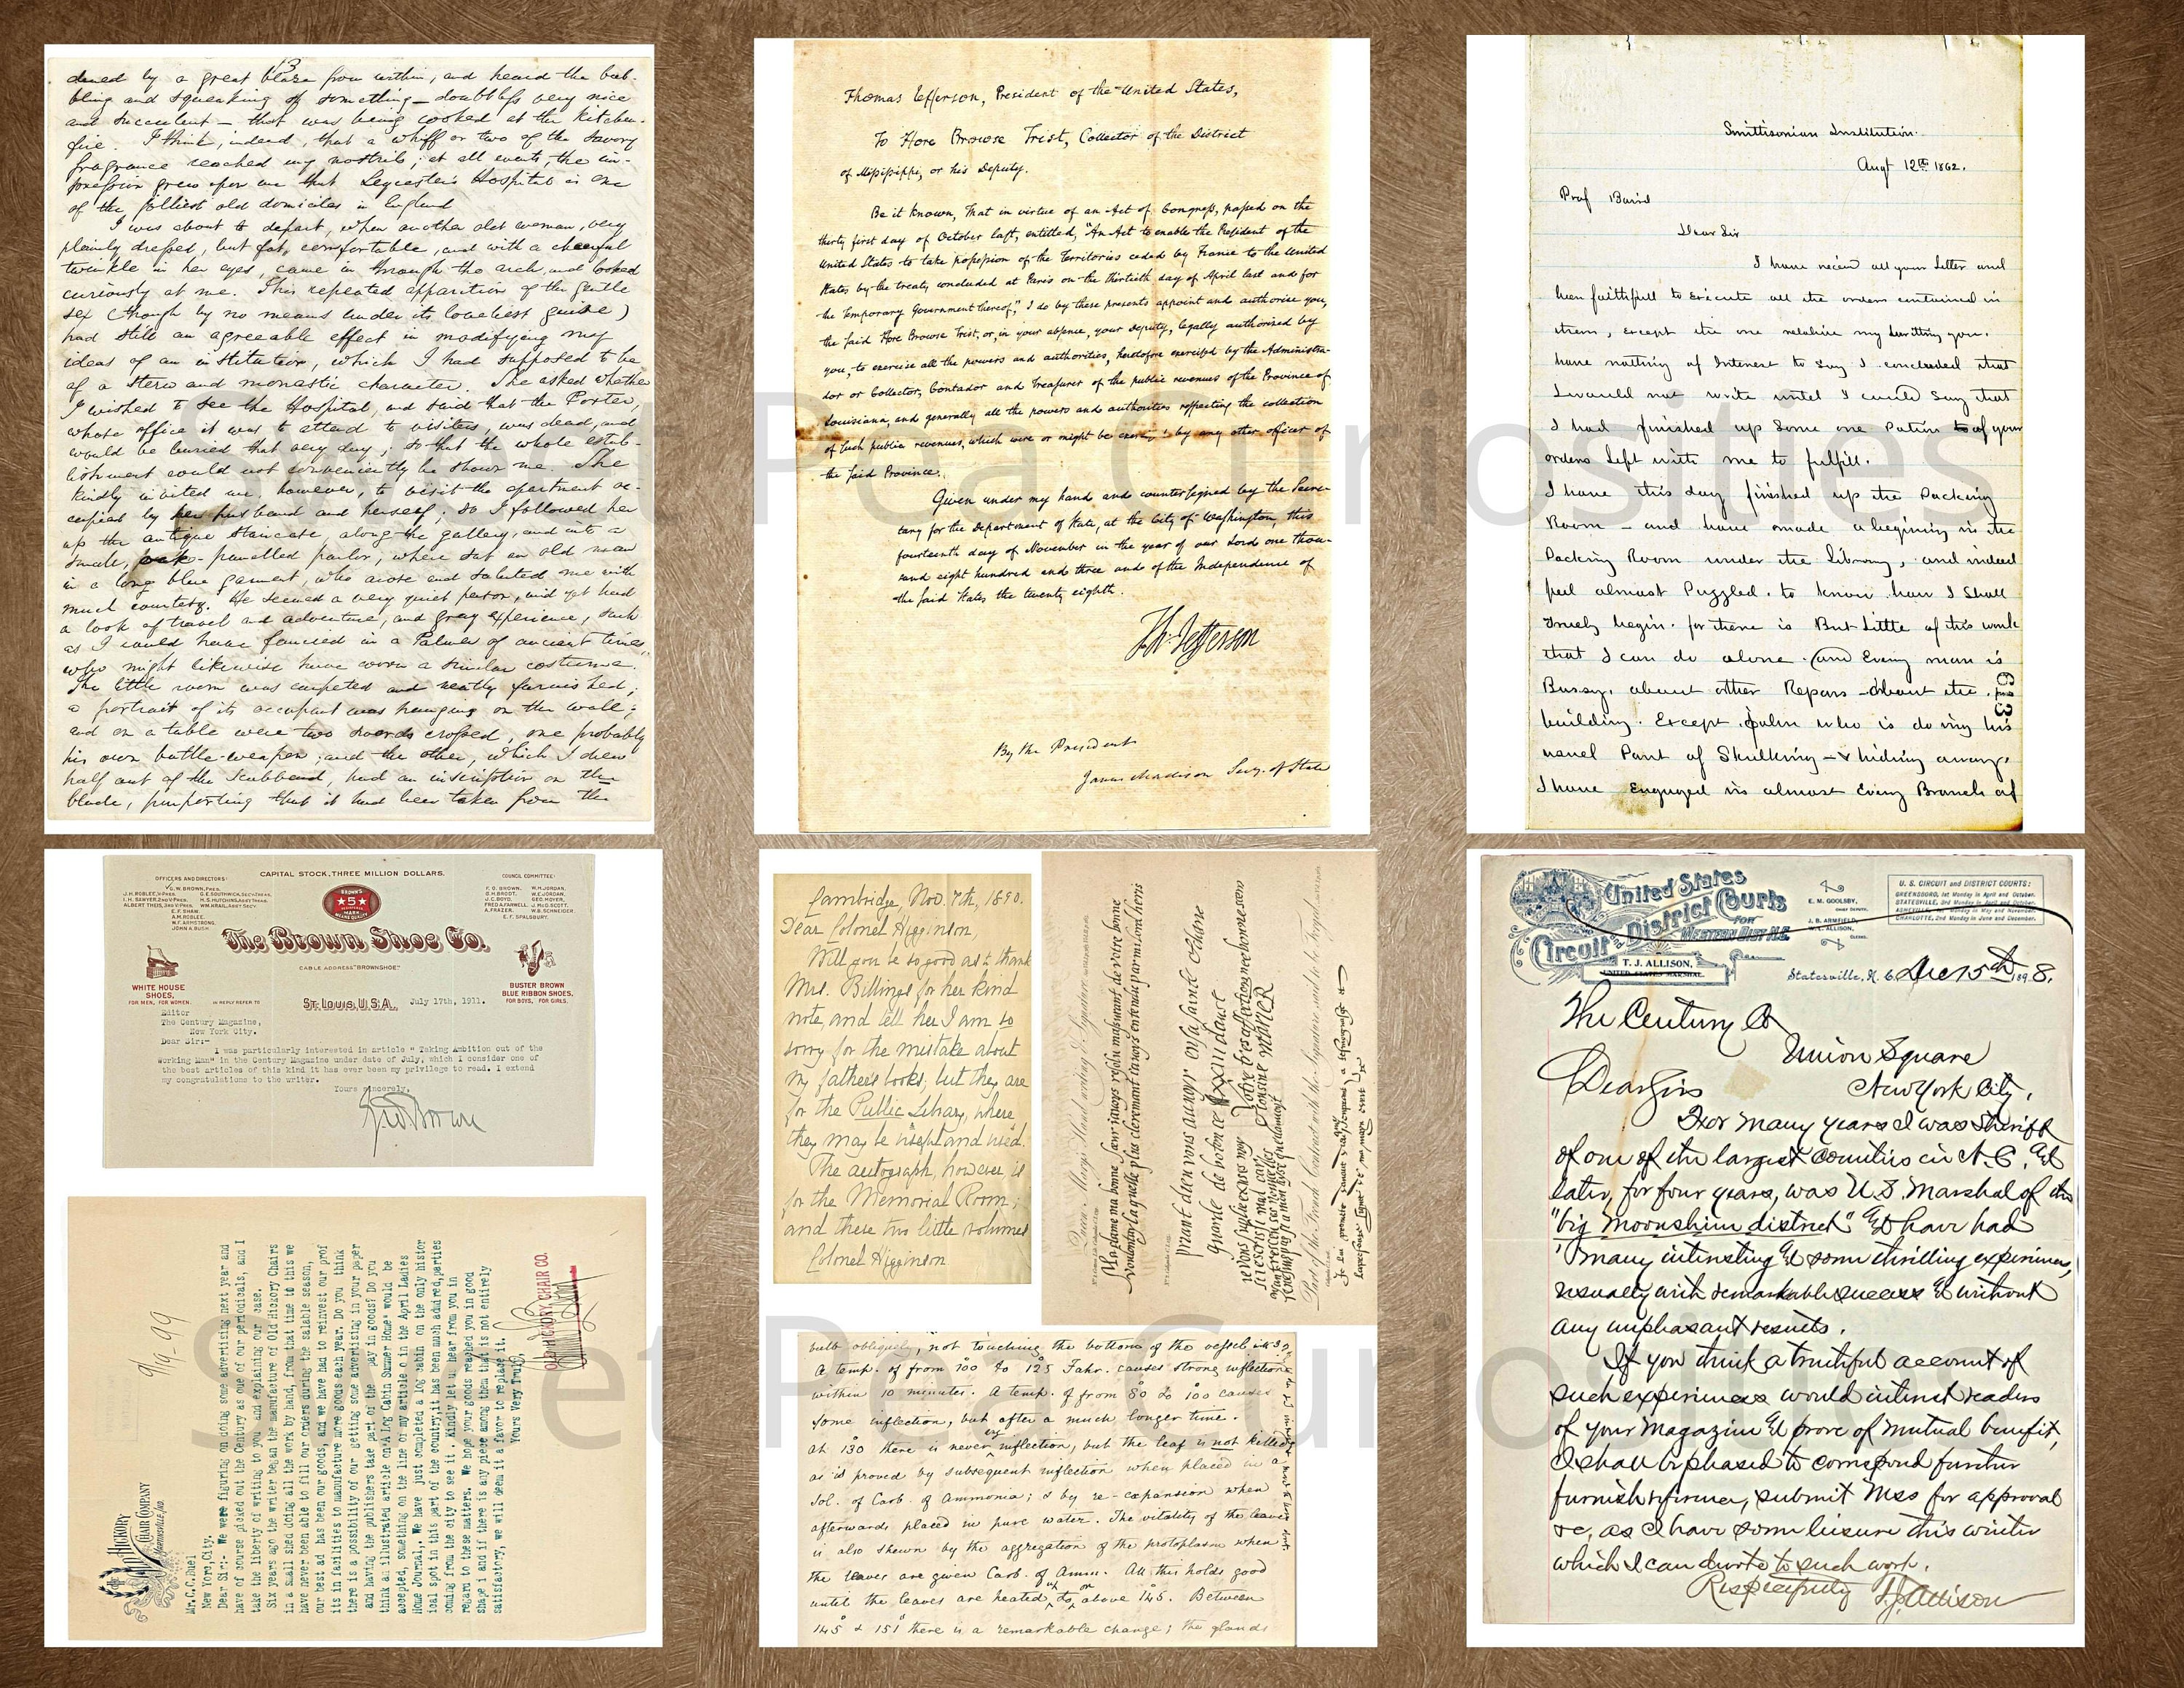 13
dened by a great blaze from within, and heard the bub-
bling and squeaking of something — doubtless very nice
and succulent — that was being cooked at the kitchen-
fire. I think, indeed, that a whiff or two of the savory
fragrance reached my nostrils; at all events, the im-
pression grew upon me that Leycester's Hospital is one
of the jolliest old domiciles in England
I was about to depart, when another old woman, very
plainly dressed, but fat, comfortable, and with a cheerful
twinkle in her eyes, came in through the arch, and looked
curiously at me. This repeated apparition of the gentle
sex (though by no means under its loveliest guise)
had still an agreeable effect in modifying my
ideas of an institution, which I had supposed to be
of a stern and monastic character. She asked whether
I wished to see the Hospital, and said that the Porter,
whose office it was to attend to visitors, was dead, and
would be buried that very day; so that the whole estab-
lishment could not conveniently be shown me. She
kindly invited me, however, to visit the apartment oc-
cupied by her husband and herself; so I followed her
up the antique staircase, along the gallery, and into a
small, oak-panelled parlor, where sat an old man
in a long blue garment, who arose and saluted me with
much courtesy. He seemed a very quiet person, and yet had
a look of travel and adventure, and gray experience, such
as I could have fancied in a Palmer of ancient times,
who might likewise have worn a similar costume.
The little room was carpeted and neatly furnished;
a portrait of its occupant was hanging on the wall;
and on a table were two swords crossed, one probably
his own battle-weapon; and the other, which I drew
half out of the scabbard, had an inscription on the
blade, purporting that it had been taken from the
Thomas Jefferson, President of the United States,
To Hore Browse Trist, Collector of the District
of Mississippi, or his Deputy.
Be it known, That in virtue of an Act of Congress, passed on the
thirty first day of October last, entitled, "An Act to enable the President of the
United States to take possession of the Territories ceded by France to the United
States by the treaty concluded at Paris on the thirtieth day of April last and for
the Temporary Government thereof," I do by these presents appoint and authorise you,
the said Hore Browse Trist, or, in your absence, your deputy, legally authorised by
you, to exercise all the powers and authorities, heretofore exercised by the Administra-
dor or Collector, Contador and Treasurer of the public revenues of the Province of
Louisiana, and generally all the powers and authorities respecting the collection
of such public revenues, which were or might be by any other officer of
the said Province.
Given under my hand and countersigned by the Secre-
tary for the Department of State, at the City of Washington, this
fourteenth day of November in the year of our Lord one thou-
sand eight hundred and three and of the Independence of
the said States the twenty eighth.
Th: Jefferson
By the President
James Madison Secy. of State
Smithsonian Institution.
Augt 12th 1862.
Prof Baird
Dear Sir
I have recied all your Letter and
been faithfull to execute all the orders contained in
them, except the one relative my writting you.
have nothing of Interest to Say I concluded that
I would not write until I could Say that
I had finished up Some one of your
orders Left with me to fulfill.
I have this day finished up the Packing
Room – and have made a begining in the
Packing Room under the Library, and indeed
feel almost Puzzled. to know how I Shall
begin. for there is But Little of this work
that I can do alone. and Every man is
Bussy. about other Repairs – about the
building. Except who is doing his
usual Part of Skulking – & hiding away.
I have Engaged in almost Every Branch of
CAPITAL STOCK, THREE MILLION DOLLARS.
OFFICERS AND DIRECTORS:
G.W. BROWN, PRES.
COUNCIL COMMITTEE:
BROWN'S
★5★
The Brown Shoe Co.
CABLE ADDRESS "BROWNSHOE"
WHITE HOUSE
SHOES,
FOR MEN, FOR WOMEN.
BUSTER BROWN
BLUE RIBBON SHOES,
FOR BOYS, FOR GIRLS.
IN REPLY REFER TO
ST. LOUIS, U.S.A., July 17th, 1911.
Editor
The Century Magazine,
New York City.
Dear Sir:-
I was particularly interested in article " Taking Ambition out of the
Working Man" in the Century Magazine under date of July, which I consider one of
the best articles of this kind it has ever been my privilege to read. I extend
my congratulations to the writer.
Yours sincerely,
Geo W Brown
OLD HICKORY
CHAIR COMPANY
9/19-99
Mr.C.C.Buel
New York,City.
Dear Sir:- We were figuring on doing some advertising next year and
have of course picked out the Century as one of our periodicals, and I
take the liberty of writing to you and explaining our case.
Six years ago the writer began the manufacture of Old Hickory Chairs
in a small shed doing all the work by hand, from that time to this we
have never been able to fill our orders during the salable season,
our best ad has been our goods, and we have had to reinvest our prof
its in facilities to manufacture more goods each year. Do you think
there is a possibility of our getting some advertising in your paper
and having the publishers take part of the pay in goods? Do you
think an illustrated article on"A Log Cabin Summer Home" would be
accepted, something on the line of my article o in the April Ladies
Home Journal,. We have just completed a log cabin on the only histor
ical spot in this part of the country,it has been much admired,parties
coming from the city to see it . Kindly let us hear from you in
regard to these matters. We hope your goods reached you in good
shape i and if there is any piece among them that is not entirely
satisfactory, we will deem it a favor to replace it.
Yours Very Truly,
OLD HICKORY CHAIR CO.
Cambridge, Nov. 7th, 1890.
Dear Colonel Higginson,
Will you be so good as to thank
Mrs. Billings for her kind
note, and tell her I am so
sorry for the mistake about
my father's books; but they are
for the Public Library, where
they may be kept and used.
The autograph, however, is
for the Memorial Room;
and these two little volumes
Colonel Higginson
bulb obliquely, not touching the bottom of the vessel
A temp. of from 100 to 125 Fahr. causes strong inflection
within 10 minutes. A temp. of from 80 to 100 causes
some inflection, but after a much longer time.
At 130 there is never inflection, but the leaf is not killed
as is proved by subsequent inflection when placed in a
Sol. of Carb. of Ammonia; & by re-expansion when
afterwards placed in pure water. The vitality of the leaves
is also shewn by the aggregation of the protoplasm when
the leaves are given Carb. of Amm. All this holds good
until the leaves are heated to or above 145. Between
145 & 151 there is a remarkable change; the glands
United States
Circuit and District Courts
FOR
WESTERN DIST. N.C.
T. J. ALLISON,
UNITED STATES MARSHAL
E. M. GOOLSBY,
CHIEF DEPUTY.
J. B. ARMFIELD,
U. S. CIRCUIT and DISTRICT COURTS:
GREENSBORO, 1st Monday in April and October.
STATESVILLE, 3rd Monday in April and October.
ASHEVILLE, 1st Monday in May and November.
CHARLOTTE, 2nd Monday in June and December.
Statesville, N. C. Dec 15th 1898.
The Century Co
Union Square
New York City.
Dear Sirs
For many years I was Sheriff
of one of the largest counties in N.C. &
later, for four years, was U.S. Marshal of the
"big moonshine district" & have had
many interesting & some thrilling experiences,
usually with remarkable success & without
any unpleasant results.
If you think a truthful account of
such experiences would interest readers
of your Magazine & prove of mutual benefit,
I shall be pleased to correspond further
furnish reference, submit Mss for approval
&c, as I have some leisure this winter
which I can devote to such work.
Respectfully T.J. Allison
Sweet Pea Curiosities
Sweet Pea Curiosities